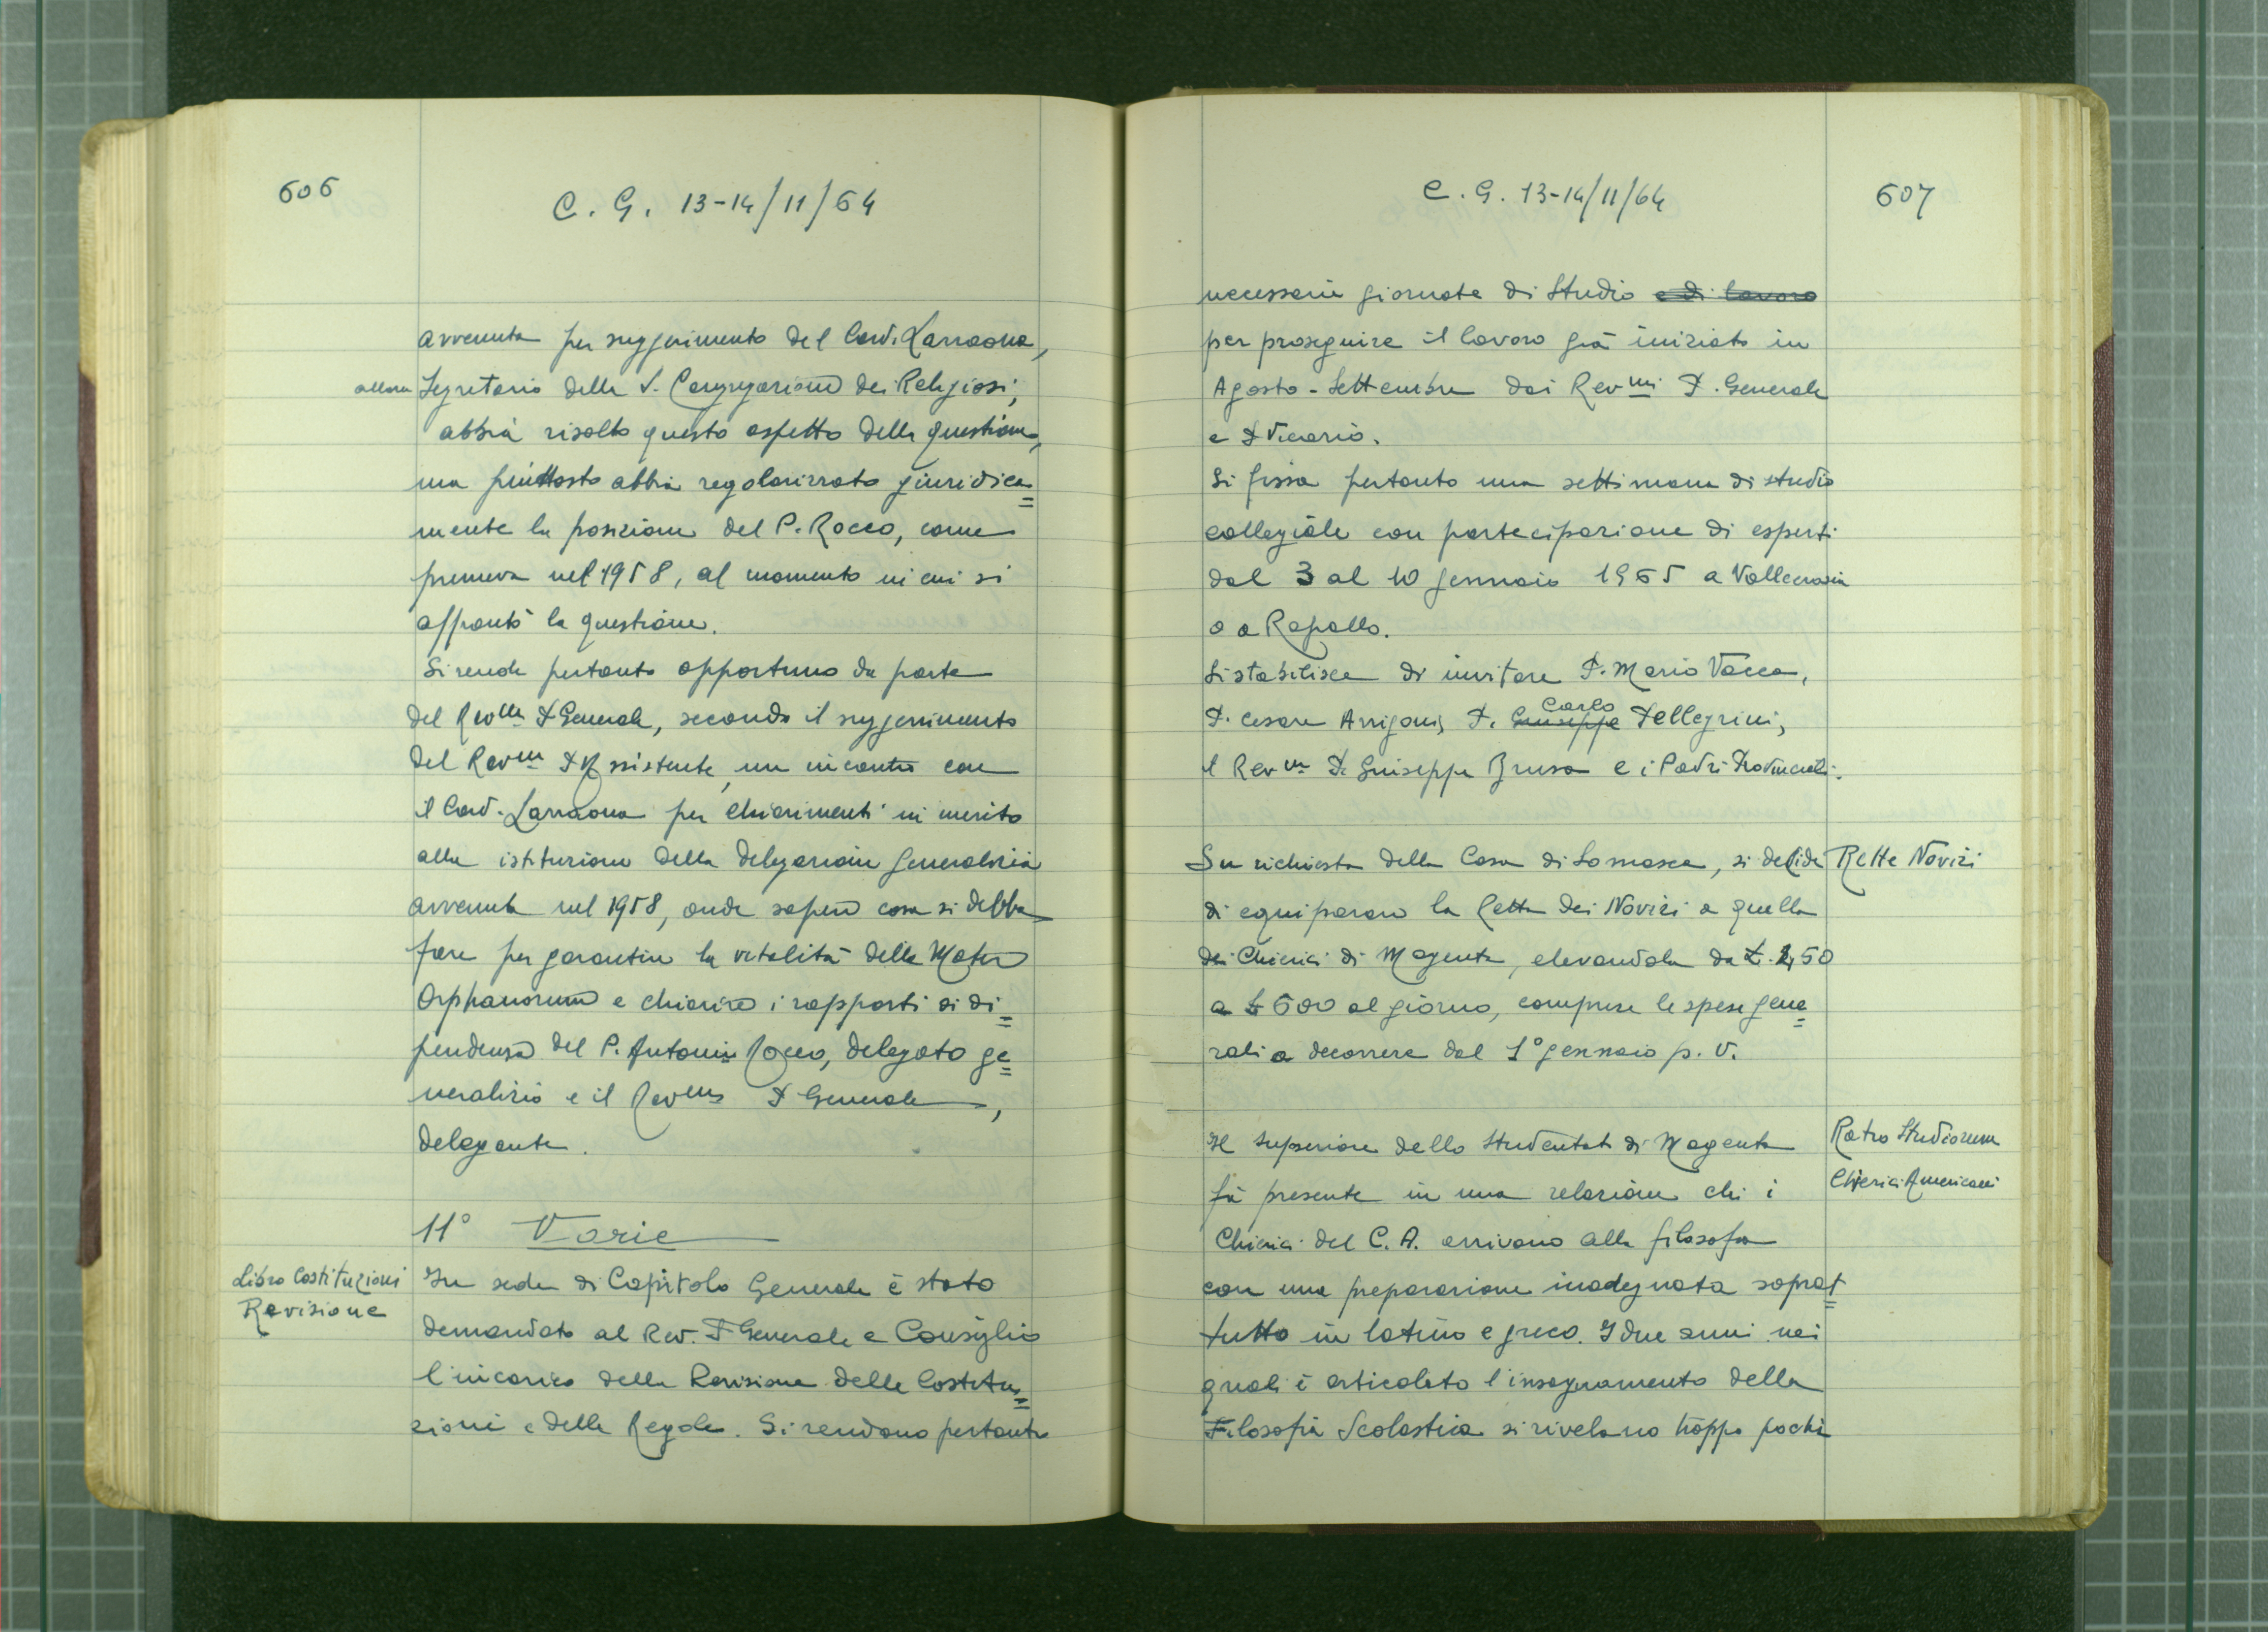 606
C. G. 13-14/11/64
avvenuta per suggerimento del Card. Larraona,
allora Segretario della S. Congregazione dei Religiosi,
abbia risolto questo aspetto della questione,
ma piuttosto abbia regolarizzato giuridica=
mente la posizione del P. Rocco, come
premeva nel 1958, al momento in cui si
affrontò la questione.
Si rende pertanto opportuno da parte
del Rev.mo P. Generale, secondo il suggerimento
del Rev.mo P. Assistente, un incontro con
il Card. Larraona per chiarimenti in merito
alla istituzione della delegazione generalizia
avvenuta nel 1958, onde sapere cosa si debba
fare per garantire la vitalità della Mater
Orphanorum e chiarire i rapporti di di=
pendenza del P. Antonio Rocco, delegato ge=
neralizio e il Rev.mo P. Generale,
delegante.
11° Varie
Libro Costituzioni
Revisione
In sede di Capitolo Generale è stato
demandato al Rev. P. Generale e Consiglio
l'incarico della Revisione delle Costitu=
zioni e delle Regole. Si rendono pertanto
C. G. 13-14/11/64
607
necessarie giornate di Studio e di lavoro
per proseguire il lavoro già iniziato in
Agosto - Settembre dai Rev.mi P. Generale
e P. Vicario.
Si fissa pertanto una settimana di studio
collegiale con partecipazione di esperti
dal 3 al 10 gennaio 1965 a Vallecrosia
o a Rapallo.
Si stabilisce di invitare P. Mario Vacca,
P. Cesare Arrigoni, P. Giuseppe Carlo Pellegrini,
il Rev.mo P. Giuseppe Brusa e i Padri Provinciali.
Su richiesta della Casa di Somasca, si decide
Rette Novizi
di equiparare la retta dei Novizi a quella
dei Chierici di Magenta, elevandola da £. 450
a £ 600 al giorno, comprese le spese gene=
rali a decorrere dal 1° gennaio p. v.
Il Superiore dello Studentato di Magenta
Ratio Studiorum
Chierici Americani
fà presente in una relazione che i
Chierici del C. A. arrivano alla filosofia
con una preparazione inadeguata soprat=
tutto in latino e greco. I due anni nei
quali è articolato l'insegnamento della
Filosofia Scolastica si rivelano troppo pochi